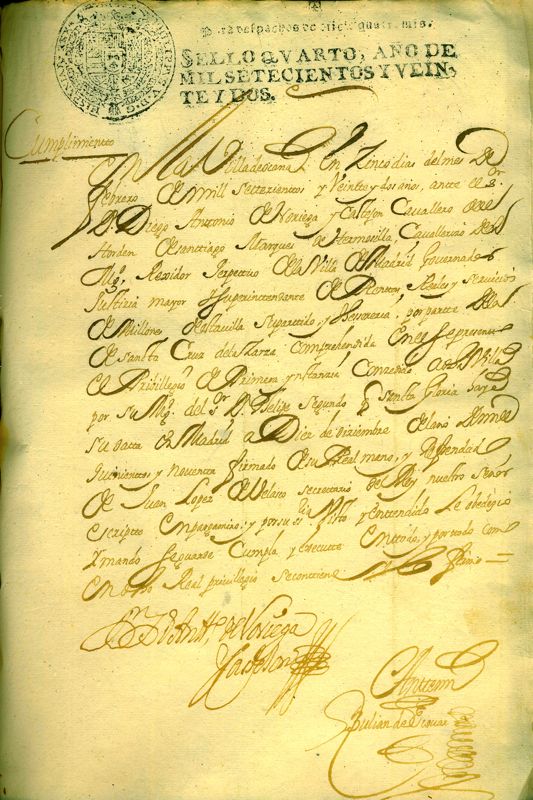 Para despachos de oficio quatro mrs.
SELLO QVARTO, AÑO DE
MIL SETECIENTOS Y VEIN-
TE Y DOS.
Cumplimiento
En la Villa de ocana En Zinco dias del mes de
febrero de mill setezientos y Veinte y dos años, ante el Sr
Dn Diego Antonio de Noriega y Cavallero del
horden de santtiago Marques de Hermosilla, Cavallerizo de su
Mgd, Rexidor Perpettuo de la Villa de Madrid Governador
Justizia mayor y superinttendente de Renttas Reales y servicios
de Millones desta villa su partido, y thesoreria, por partte de la
de santta Cruz de la Zarza comprehendida En el se presentto
el Privillegio de Primera ynstanzia Conzedido a dha Villa
por su Mgd del Sr Dn Felipe Segundo q santa Gloria haya
su datta en Madrid a Diez de Diziembre del año de mill
quinientos, y noventta firmado de su Real mano, y Refrendado
de Juan Lopez de Velasco secretario del Rey nuestro señor
escripto En pergamino; y por su sria Visto y enttendido Le obedezio
Y mando se guarde Cumpla, y execute En ttodo, y por ttodo como
en dho Real privillegio se conttiene y lo firmo =
Dn Dg Antt de Noriega
Antte mi
Julian de